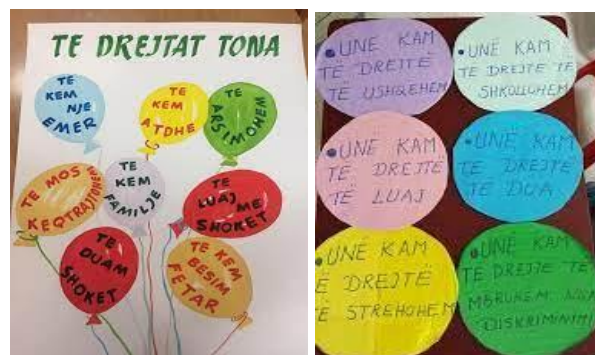 TE DREJTAT TONA
TE
KEM
NJE
EMER
TE
KEM
ATDHE
TE
ARSIMOHEM
TE MOS
KEQTRAJTOHEM
TE
KEM
FAMILJE
TE
LUAJ ME
SHOKET
TE
DUAM
SHOKET
TE KEM
BESIM
FETAR
UNE KAM
TË DREJTË
TË USHQEHEM
UNË KAM
TË DREJTË TË
SHKOLLOHEM
UNË KAM
TË DREJTË
TË LUAJ
UNË KAM
TË DREJTË
TË DUA
UNË KAM
DREJTË
STREHOHEM
UNË KAM
TË DREJTË TË
MBROHEM NGA
DISKRIMINIMI